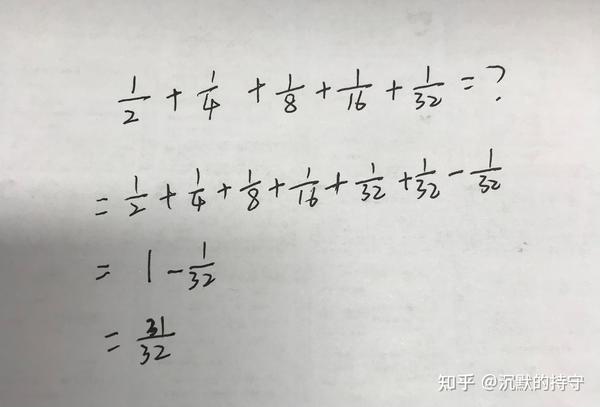 1/2 + 1/4 + 1/8 + 1/16 + 1/32 = ?
= 1/2 + 1/4 + 1/8 + 1/16 + 1/32 + 1/32 - 1/32
= 1 - 1/32
= 31/32
知乎 @沉默的持守